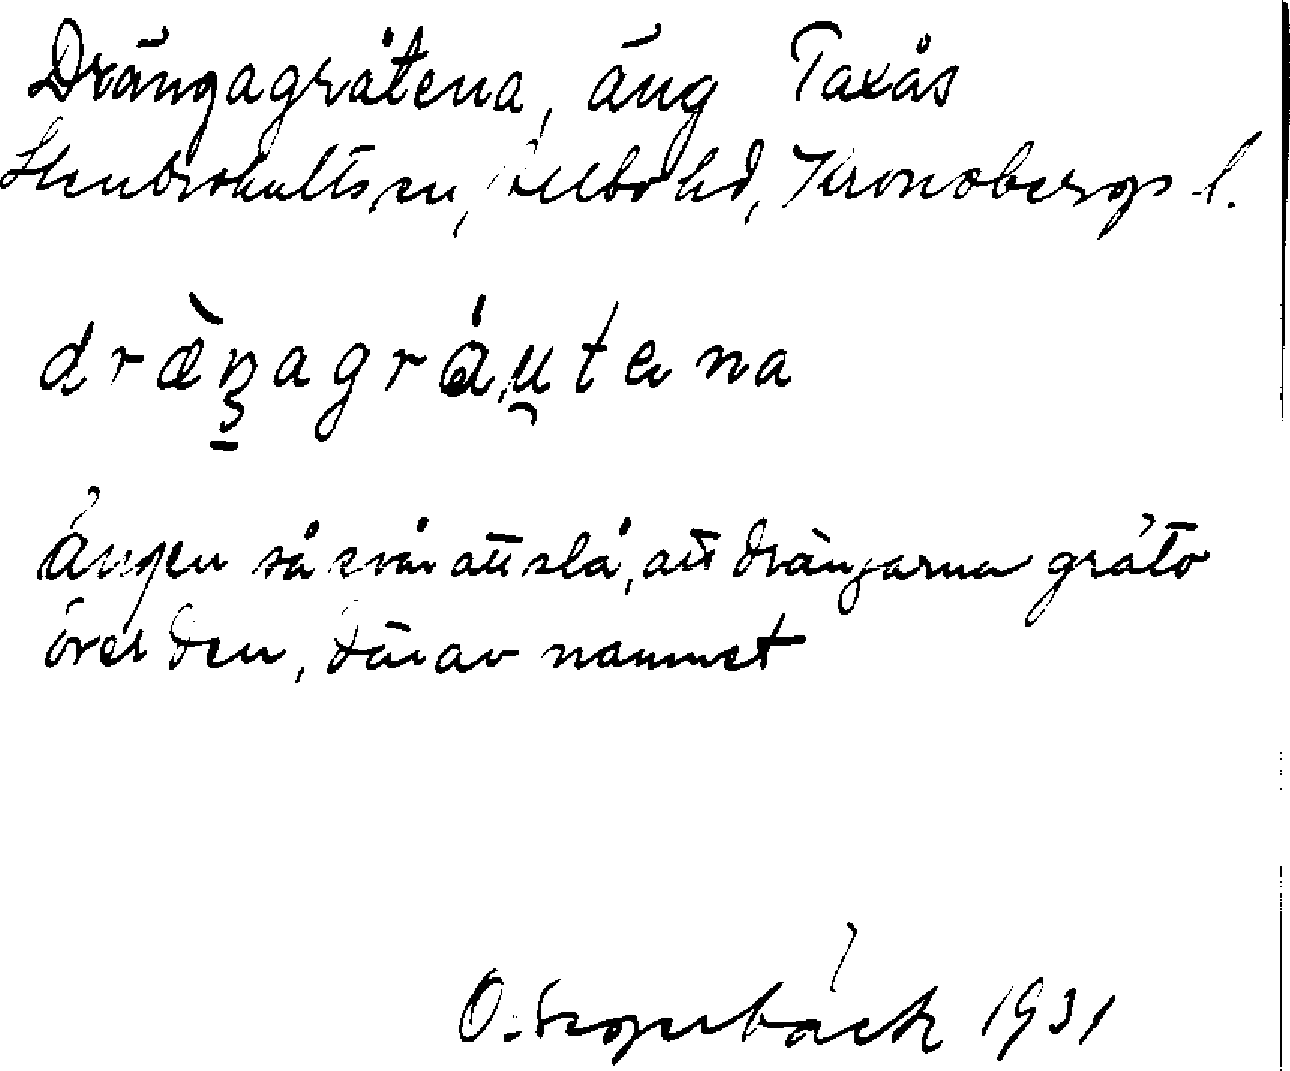 Drängagråtena, äng Taxås
Stenbrohults sn, Allbo hd, Kronobergs l.
dræ̀ŋagráu̯tena
Ängen så svår att slå, att drängarna gräto
över den, därav namnet
O. 1931